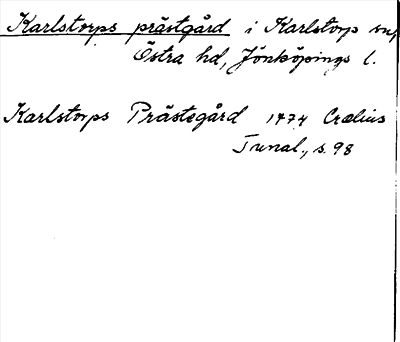 Karlstorps prästgård i Karlstorp sn,
Östra hd, Jönköpings l.
Karlstorps Prästegård 1774 Crælius
Tunal., s. 98